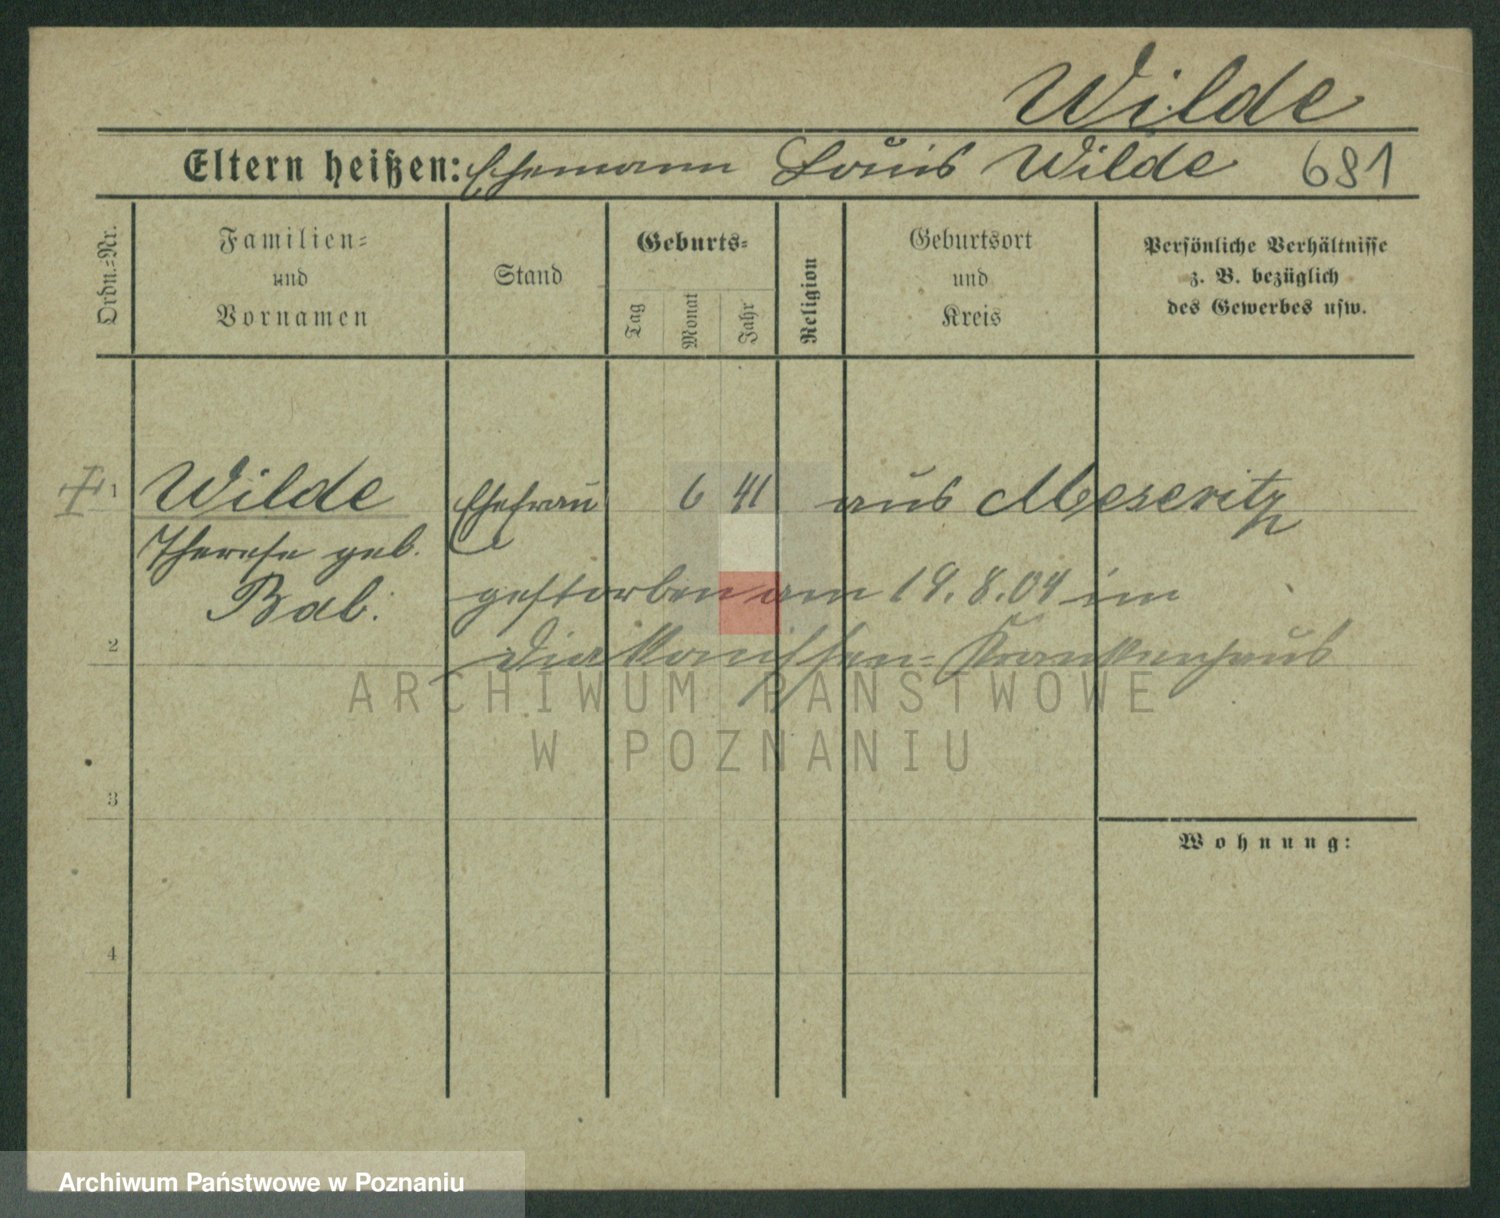 Wilde
Eltern heißen: Ehemann Louis Wilde 681
Ordn.-Nr.
Familien-
und
Vornamen
Stand
Geburts-
Tag
Monat
Jahr
Religion
Geburtsort
und
Kreis
Persönliche Verhältnisse
z. B. bezüglich
des Gewerbes usw.
1 Wilde Ehefrau 6 41 aus Meseritz
Therese geb.
Bab.
gestorben am 19.8.04 im
2 Diakonissen-Krankenhaus
ARCHIWUM PAŃSTWOWE
W POZNANIU
3
Wohnung:
4
Archiwum Państwowe w Poznaniu